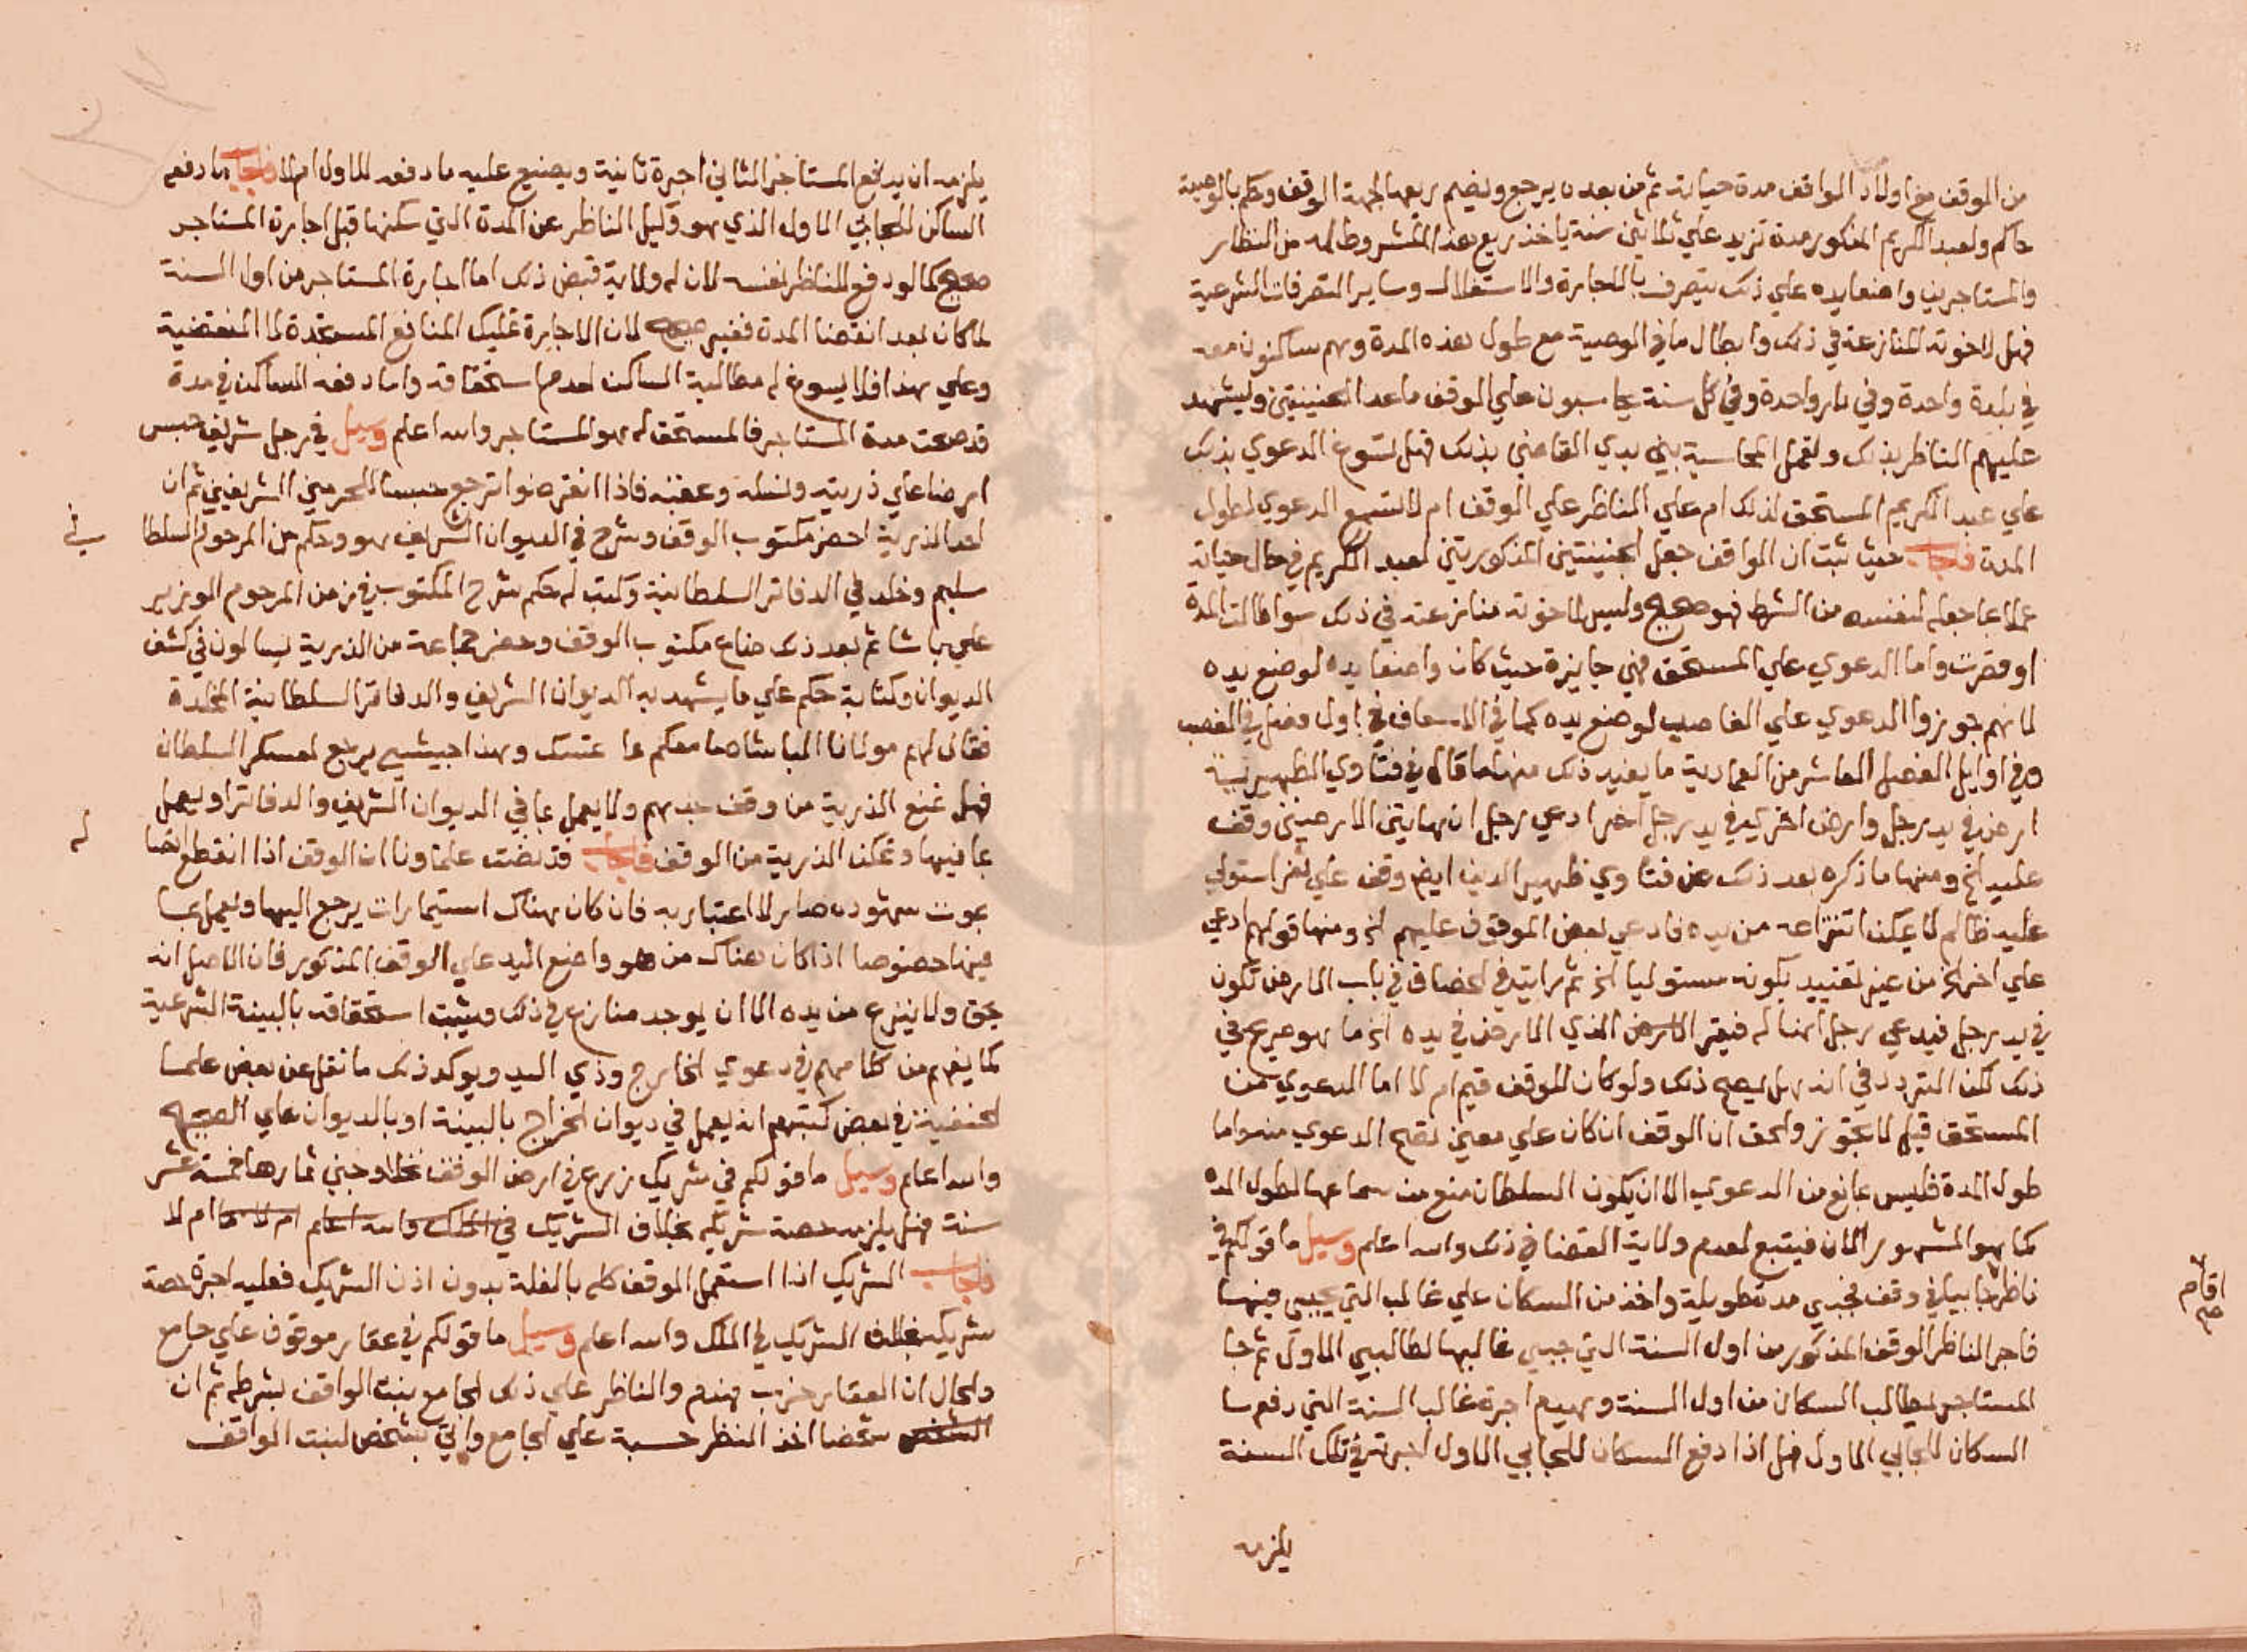 من الوقف مع اولاد الواقف مدة حياته ثم من بعده يرجع ويضم ريعها لجهة الوقف وحكم بالوصية
حاكم ولعبد الكريم المذكور مدة تزيد علي ثلاثين سنة ياخذ ريع هذا المشروط له من النظار
والمستاجرين واضعا يده علي ذلك يتصرف بالاجارة والاستغلال وساير التصرفات الشرعية
فهل لاخوته المنازعة في ذلك وابطال ما في الوصية مع طول هذه المدة وهم ساكنون معه
في بلدة واحدة وفي دار واحدة وفي كل سنة يحاسبون علي الوقف ما عدا الجنينتين وليشهد
عليهم الناظر بذلك ولعمل المحاسبة بين يدي القاضي بذلك فهل تسوغ الدعوي بذلك
علي عبد الكريم المستحق لذلك ام علي الناظر علي الوقف ام لا تسمع الدعوي لطول
المدة فاجاب حيث ثبت ان الواقف جعل الجنينتين المذكورتين لعبد الكريم في حال حياته
عملا بما جعله لنفسه من الشرط فهو صحيح وليس لاخوته منازعته في ذلك سوا طالت المدة
او قصرت واما الدعوي علي المستحق فهي جايزة حيث كان واضعا يده لوضع يده
لانهم جوزوا الدعوي علي الغاصب لوضع يده كما في الاسعاف في اول فصل في الغصب
وفي اوايل الفصل العاشر من العمادية ما يفيد ذلك منها ما قال في فتاوي الظهيرية
ارض في يد رجل وارض اخري في يد رجل اخر ادعي رجل ان هاتين الارضين وقف
عليه الخ ومنها ما ذكره بعد ذلك عن فتاوي ظهير الدين ايضا وقف علي نفر استولي
عليه ظالم لا يمكن انتزاعه من يده فادعي بعض الموقوف عليهم الخ ومنها قولهم ادعي
علي اخر الخ من غير تقييد بكونه مستوليا الخ ثم رايت في الخصاف في باب الارض تكون
في يد رجل فيدعي رجل انها له فيقر الارض الذي الارض في يده الخ ما هو صريح في
ذلك لكن التردد في انه هل يصح ذلك ولو كان للوقف قيم ام لا اما الدعوي من
المستحق قيل لا تجوز والحق ان الوقف ان كان علي معين تصح الدعوي منه واما
طول المدة فليس بمانع من الدعوي الا ان يكون السلطان منع من سماعها لطول المده
كما هو المشهور الان فيتبع لعدم ولاية القضا في ذلك والله اعلم وسيل ما قولكم في
ناظر جابيا في وقف فجبي مدة طويلة واخذ من السكان علي غالب التي يجبي فيها
فاجر الناظر الوقف المذكور من اول السنة التي جبي غالبها لطالبي الاول ثم جا
المستاجر ليطالب السكان من اول السنة وبيدهم اجرة غالب السنة التي دفعها
السكان للجابي الاول فهل اذا دفع السكان للجابي الاول اجرته في تلك السنة
يلزمه
اقام
صح
يلزمه ان يدفع المستاجر الثاني اجرة ثانية ويضيع عليه ما دفعه للاول ام لا فاجاب ما دفعه
الساكن للجابي الاول الذي هو وكيل الناظر عن المدة التي سكنها قبل اجارة المستاجر
صحيح كما لو دفع للناظر نفسه لان له ولاية قبض ذلك اما اجارة المستاجر من اول السنة
لما كان بعد انقضا المدة فغير صحيح لان الاجارة تمليك المنافع المستجدة لا المنقضية
وعلي هذا فلا يسوغ له مطالبة الساكن لعدم استحقاقه واما دفعه الساكن في مدة
قد صحت مدة المستاجر فالمستحق له هو المستاجر والله اعلم وسيل في رجل شريف حبس
ارضا علي ذريته ونسله وعقبه فاذا انقرضوا ترجع حبسا للحرمين الشريفين ثم ان
احد الذرية احضر مكتوب الوقف وشرح في الديوان الشريف هو وحكم من المرحوم السلطان
سليم وخلد في الدفاتر السلطانية وكتب له حكم شرح المكتوب في زمن المرحوم الوزير
علي باشا ثم بعد ذلك ضاع مكتوب الوقف وحضر جماعة من الذرية يسالون في كشف
الديوان وكتابة حكم علي ما يشهد به الديوان الشريف والدفاتر السلطانية المخلدة
فقال لهم مولانا الباشا ما معكم ما عتسك وهذا جيشي يرجع لعسكر السلطان
فهل تمنع الذرية من وقف جدهم ولا يعمل بما في الديوان الشريف والدفاتر او يعمل
بما فيها وتمكن الذرية من الوقف فاجاب قد نصت علماونا ان الوقف اذا انقطع ايضا
بموت شهوده صار لا اعتبار به فان كان هناك استيمارات يرجع اليها ويعمل بما
فيها خصوصا اذا كان هناك من هو واضع اليد علي الوقف المذكور فان الاصل انه
بحق ولا ينزع من يده الا ان يوجد منازع في ذلك ويثبت استحقاقه بالبينة الشرعية
كما يفهم من كلامهم في دعوي الخارج وذي اليد ويوكد ذلك ما نقل عن بعض علما
الحنفية في بعض كتبهم انه يعمل في ديوان الخراج بالبينة او بالديوان علي الصحيح
والله اعلم وسيل ما قولكم في شريك زرع في ارض الوقف نخلا وجني ثمارها خمسة عشر
سنة فهل يلزمه حصة شريكه بخلاف الشريك في الملك والله اعلم ام لا ام لا
فاجاب الشريك اذا استعمل الوقف كله بالغلة بدون اذن الشريك فعليه اجرة حصة
شريكه بخلاف الشريك في الملك والله اعلم وسيل ما قولكم في عقار موقوف علي جامع
والحال ان العقار خرب تهدم والناظر علي ذلك الجامع بنت الواقف بشرطه ثم ان
الشخص شخصا اخذ النظر حسبة علي الجامع واتي بشخص لبنت الواقف